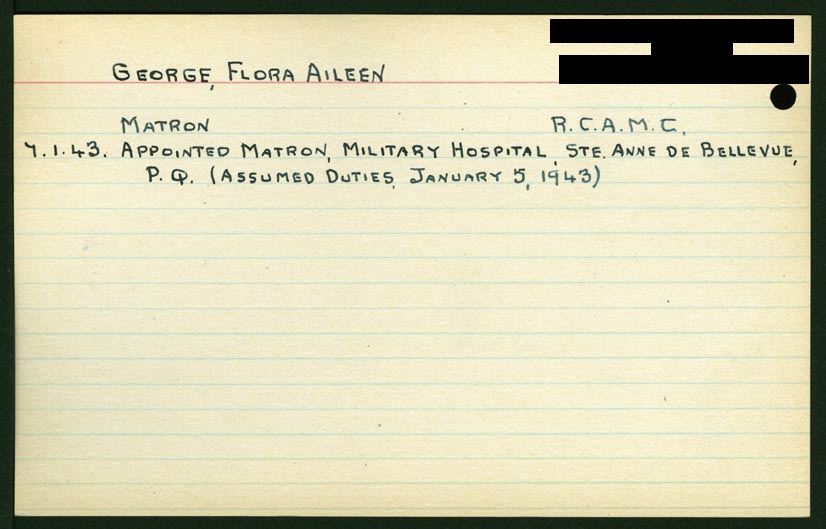 GEORGE, FLORA AILEEN
MATRON R.C.A.M.C.
7.1.43. APPOINTED MATRON, MILITARY HOSPITAL, STE. ANNE DE BELLEVUE,
P.Q. (ASSUMED DUTIES, JANUARY 5, 1943)